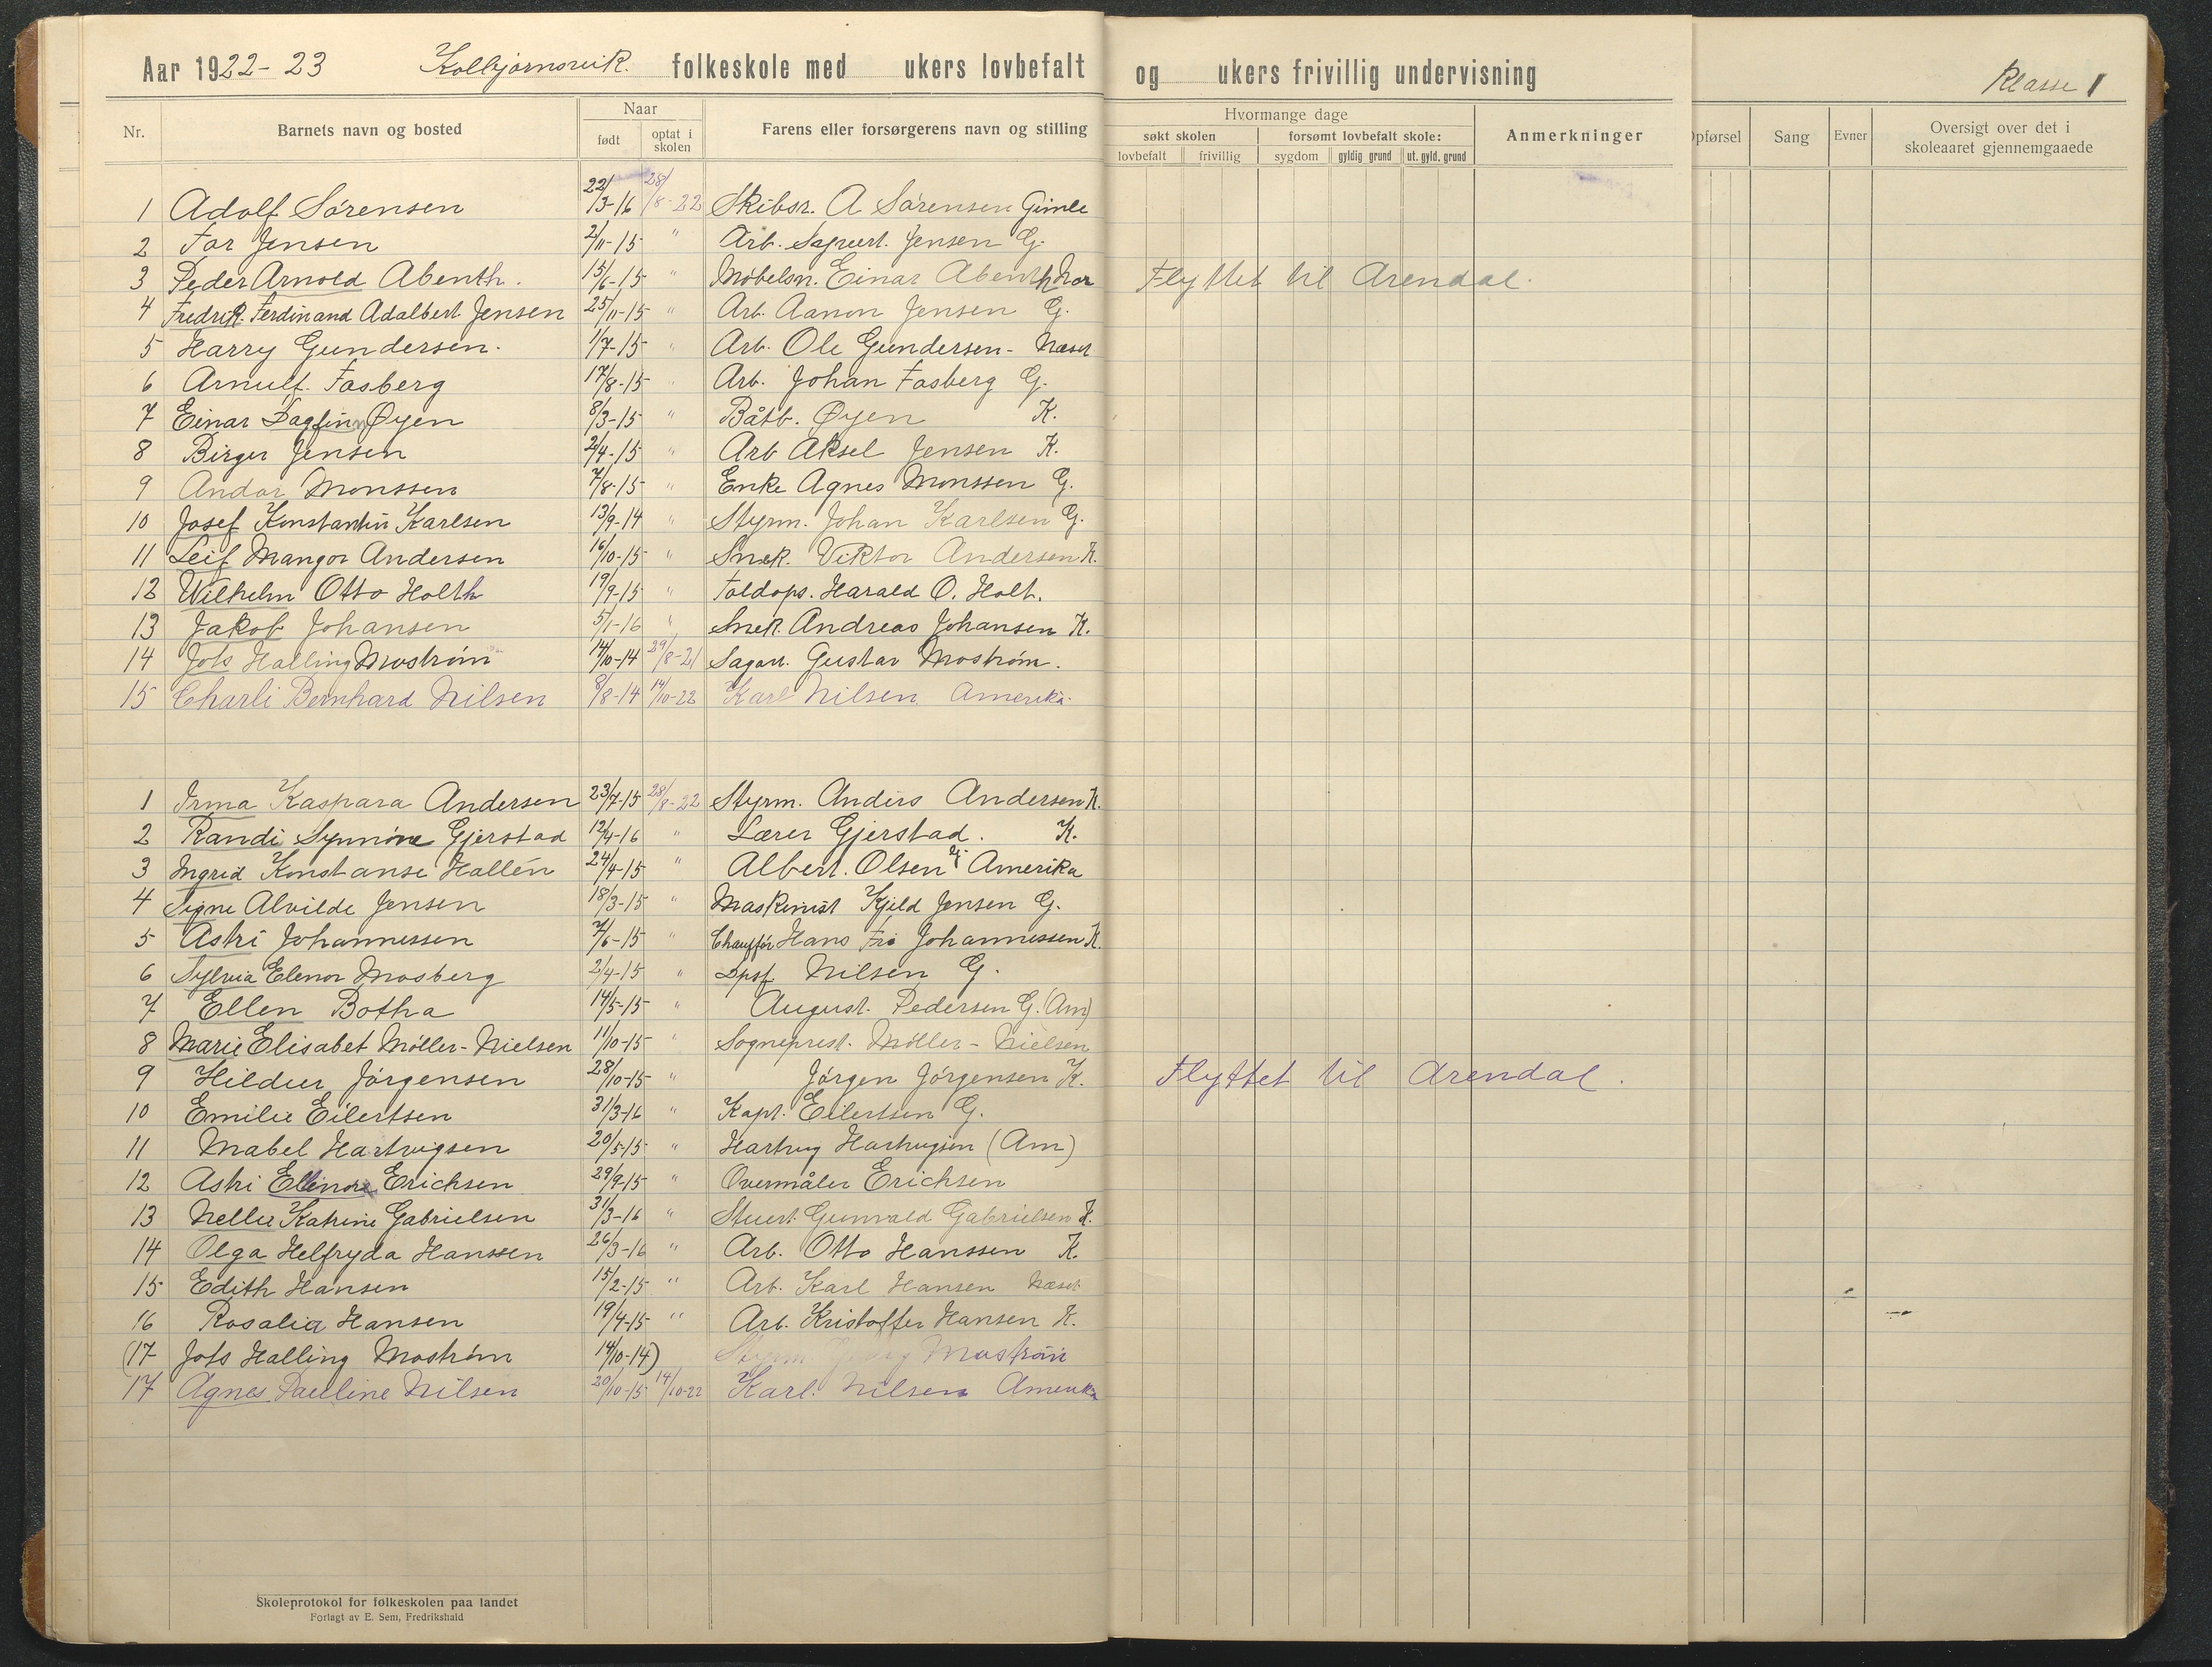 Aar 1922-23 Kolbjørnsvik. folkeskole med ukers lovbefalt og ukers frivillig undervisning
Klasse 1
Nr. Barnets navn og bosted Naar Farens eller forsørgerens navn og stilling Hvormange dage Anmerkninger Opførsel Sang Evner Oversigt over det i skoleaaret gjennemgaaede
født optat i skolen søkt skolen forsømt lovbefalt skole:
lovbefalt frivillig sygdom gyldig grund ut. gyld. grund
1 Adolf Sørensen 22/3-16 28/8-22 Skibsr. A Sørensen Gimle
2 Tor Jensen 2/11-15 " Arb. Jensen G.
3 Peder Arnold Abenth. 15/6-15 " Møbelsn. Einar Abenth Flyttet til Arendal.
4 Fredrik Ferdinand Adalbert Jensen 25/11-15 " Arb. Aanon Jensen G.
5 Harry Gundersen. 1/7-15 " Arb. Ole Gundersen - Næset
6 Arnulf Fasberg 17/8-15 " Arb. Johan Fasberg G.
7 Einar Dagfinn Øyen 8/3-15 " Båtb. Øyen K.
8 Birger Jensen 2/4-15 " Arb Aksel Jensen K.
9 Andor Monssen 7/8-15 " Enke Agnes Monssen G.
10 Josef Konstantin Karlsen 13/9-14 " Styrm. Johan Karlsen G.
11 Leif Mangor Andersen 16/10-15 " Snek. Viktor Andersen K.
12 Wilhelm Otto Holth 19/9-15 " Toldops. Harald O. Holt.
13 Jakob Johansen 5/1-16 " Snek. Andreas Johansen K.
14 Jots Halling Mostrøm 14/10-14 29/8-21 Sagarb. Gustav Mostrøm.
15 Charli Bernhard Nilsen 8/8-14 14/10-22 Karl Nilsen Amerika.
1 Irma Kaspara Andersen 23/7-15 28/8-22 Styrm. Anders Andersen K.
2 Randi Synnøve Gjerstad 12/4-16 " Lærer Gjerstad. K.
3 Ingrid Konstanse Hallén 24/4-15 " Albert Olsen G. Amerika
4 Signe Alvilde Jensen 18/3-15 " Maskinist Kjeld Jensen G.
5 Astri Johannessen 7/6-15 " Chauffør Hans Fr. Johannessen K.
6 Sylvia Elenor Mosberg 2/4-15 " Dpsf. Nilsen G.
7 Ellen Botha 14/5-15 " August Pedersen G. (Am)
8 Marie Elisabet Møller-Nielsen 11/10-15 " Sogneprest. Møller-Nielsen
9 Hildur Jörgensen 28/10-15 " Jörgen Jörgensen K. Flyttet til Arendal.
10 Emilie Eilertsen 31/3-16 " Kapt. Eilertsen G.
11 Mabel Hartvigsen 20/5-15 " Hartvig Hartvigsen (Am)
12 Astri Ellinore Erichsen 29/9-15 " Overmåler Erichsen
13 Nellie Katrine Gabrielsen 31/3-16 " Stuert Gunvald Gabrielsen K.
14 Olga Helfryda Hanssen 26/3-16 " Arb. Otto Hanssen K.
15 Edith Hansen 15/2-15 " Arb. Karl Hansen Næset
16 Rosalia Hansen 19/4-15 " Arb. Kristoffer Hansen K.
(17 Jots Halling Mostrøm 14/10-14) Styrm. Mostrøm
17 Agnes Pauline Nilsen 20/10-15 14/10-22 Karl. Nilsen Amerika
Skoleprotokol for folkeskolen paa landet
Forlagt av E. Sem, Fredrikshald